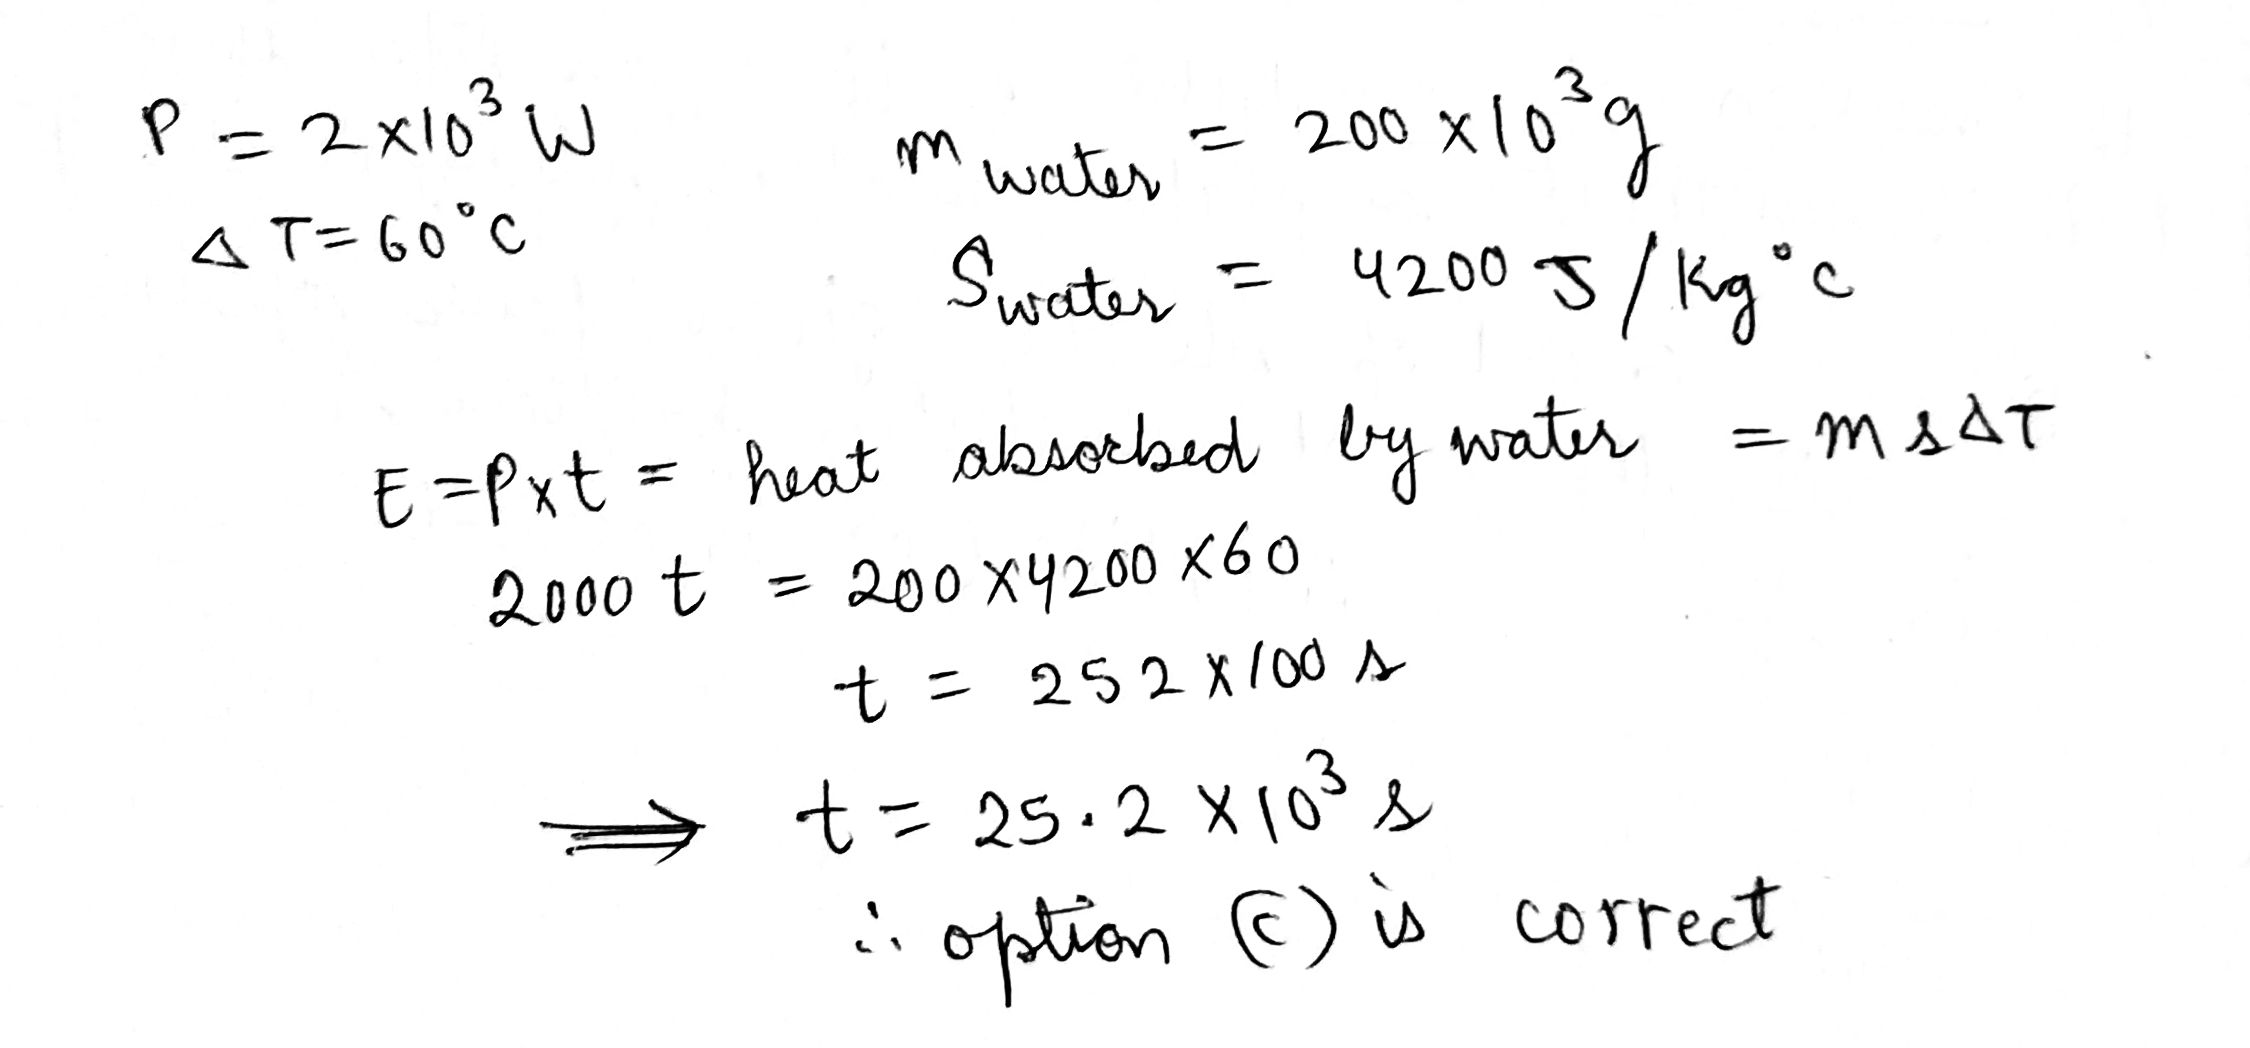 P = 2×10³ W
m water = 200 ×10³ g
Δ T = 60°C
S water = 4200 J / Kg °C
E = P×t = heat absorbed by water = m s ΔT
2000 t = 200 ×4200 ×60
t = 252 ×100 s
⟹ t = 25.2 ×10³ s
∴ option (c) is correct